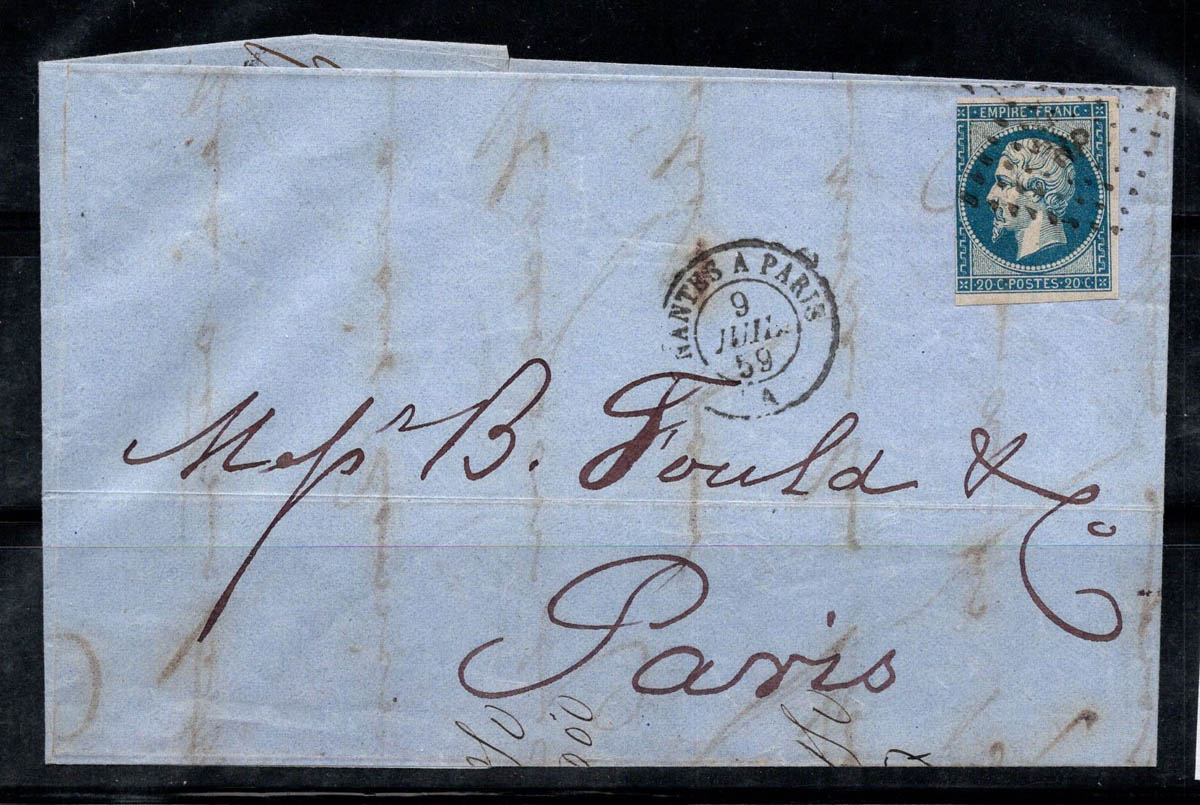 EMPIRE FRANC
20·C·POSTES·20·C
NANTES A PARIS
9
JUIL
59
A
Messrs B. Fould & Co
Paris